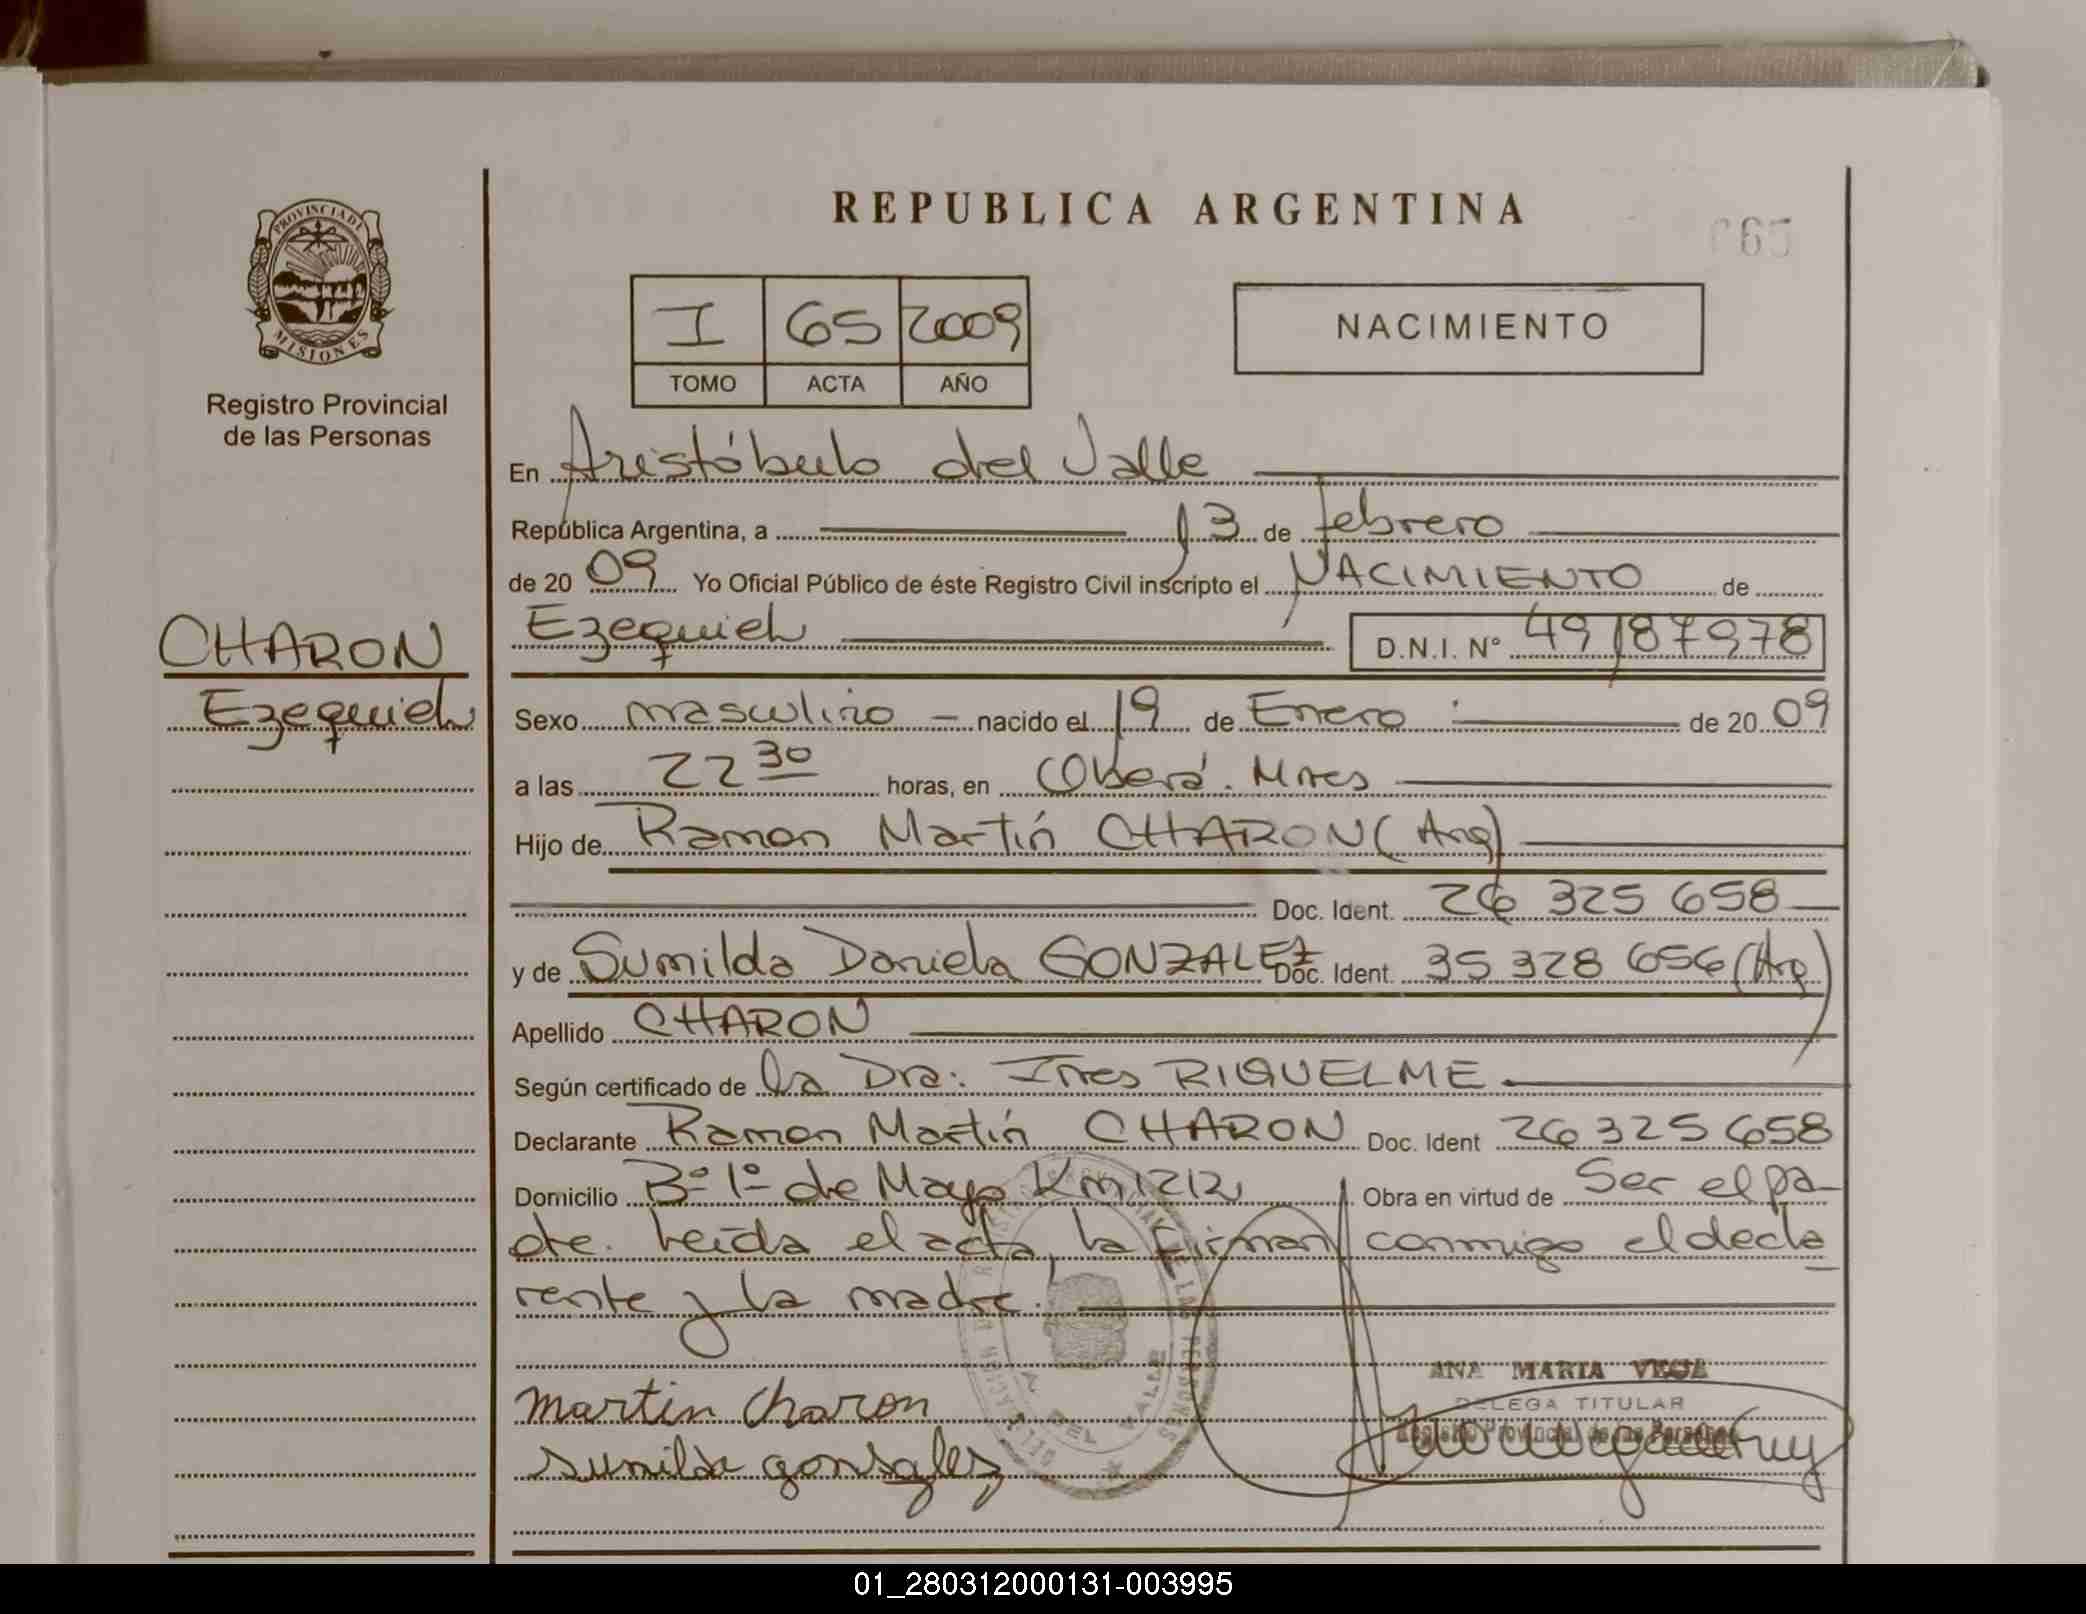 REPUBLICA ARGENTINA
065
PROVINCIA DE
MISIONES
Registro Provincial
de las Personas
I 65 2009
TOMO ACTA AÑO
NACIMIENTO
En Aristóbulo del Valle
República Argentina, a 13 de febrero
de 20 09 Yo Oficial Público de éste Registro Civil inscripto el NACIMIENTO de
Ezequiel D.N.I. N° 49187978
CHARON
Ezequiel
Sexo masculino nacido el 19 de Enero de 20 09
a las 22 30 horas, en Oberá. Mnes
Hijo de Ramon Martín CHARON (Arg)
Doc. Ident. 26 325 658
y de Sumilda Daniela GONZALEZ Doc. Ident. 35 328 656 (Arg)
Apellido CHARON
Según certificado de la Dra: Ines RIQUELME
Declarante Ramon Martín CHARON Doc. Ident 26 325 658
Domicilio Bº 1º de Mayo Km 1212 Obra en virtud de Ser el pa
dre. Leída el acta, la firman conmigo el decla
rante y la madre.
martin charon
sumilda gonzalez
A. DEL VALLE
ANA MARIA VEGA
DELEGA TITULAR
Registro Provincial de las Personas
01_280312000131-003995